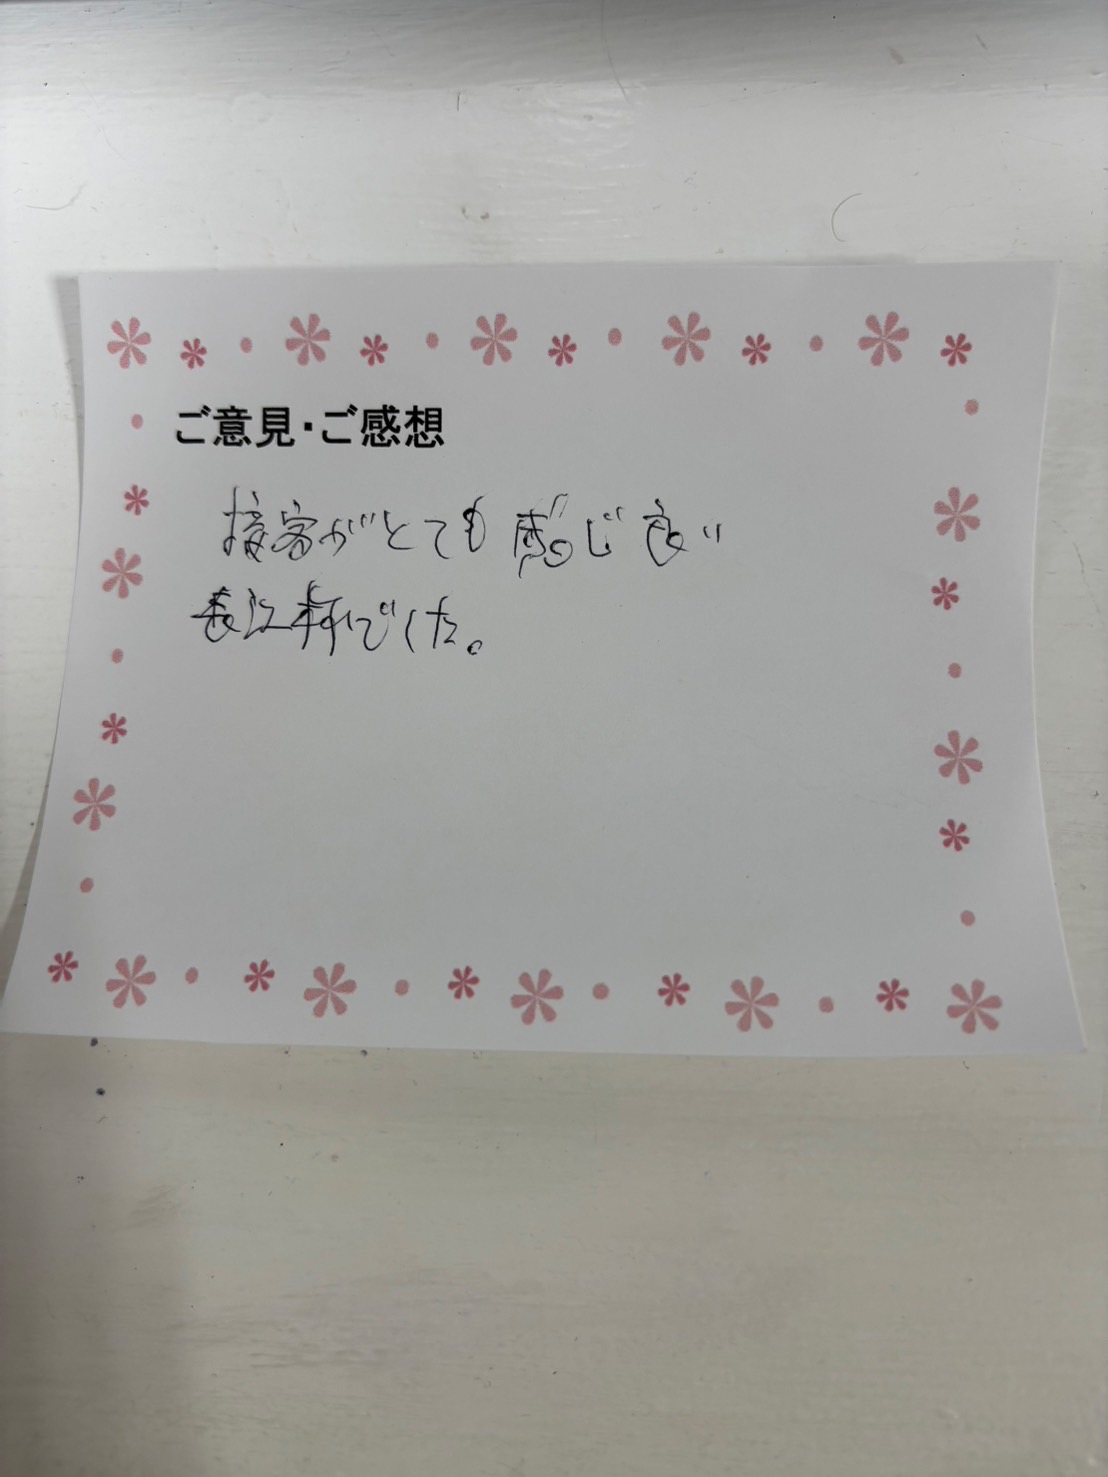 ご意見・ご感想
接客がとても感じ良い
でした。